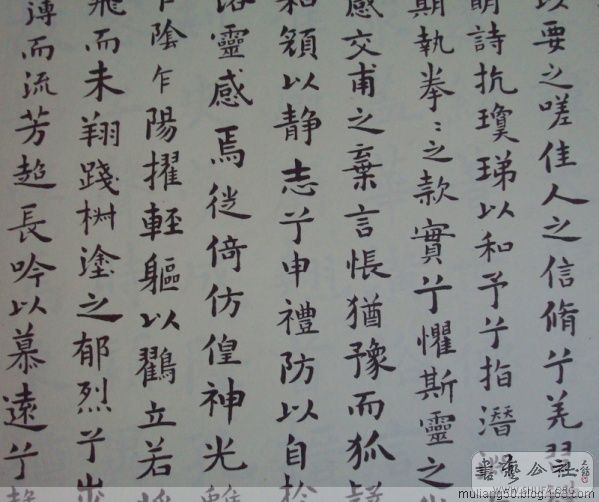 以要之嗟佳人之信脩兮羌
明詩抗瓊珶以和予兮指潛
期執拳〻之款實兮懼斯靈之
感交甫之棄言悵猶豫而狐疑
和顏以静志兮申禮防以自
洛靈感焉徙倚仿偟神光離
乍陰乍陽擢輕軀以鸖立若
飛而未翔踐椒塗之郁烈兮
薄而流芳超長吟以慕遠兮
書藝公社
muliang50.blog.163.com